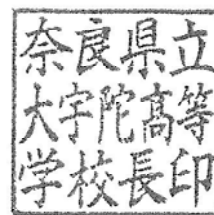 奈良県立
大宇陀高等
学校長印